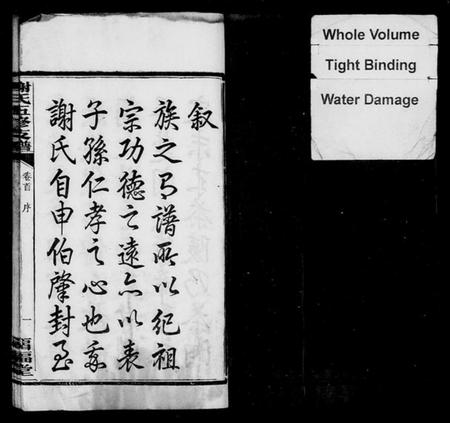 叙
族之有譜所以紀祖
宗功德之遠亦以表
子孫仁孝之心也我
謝氏自申伯肇封至
謝氏五修支譜
卷首 序
一
Whole Volume
Tight Binding
Water Damage